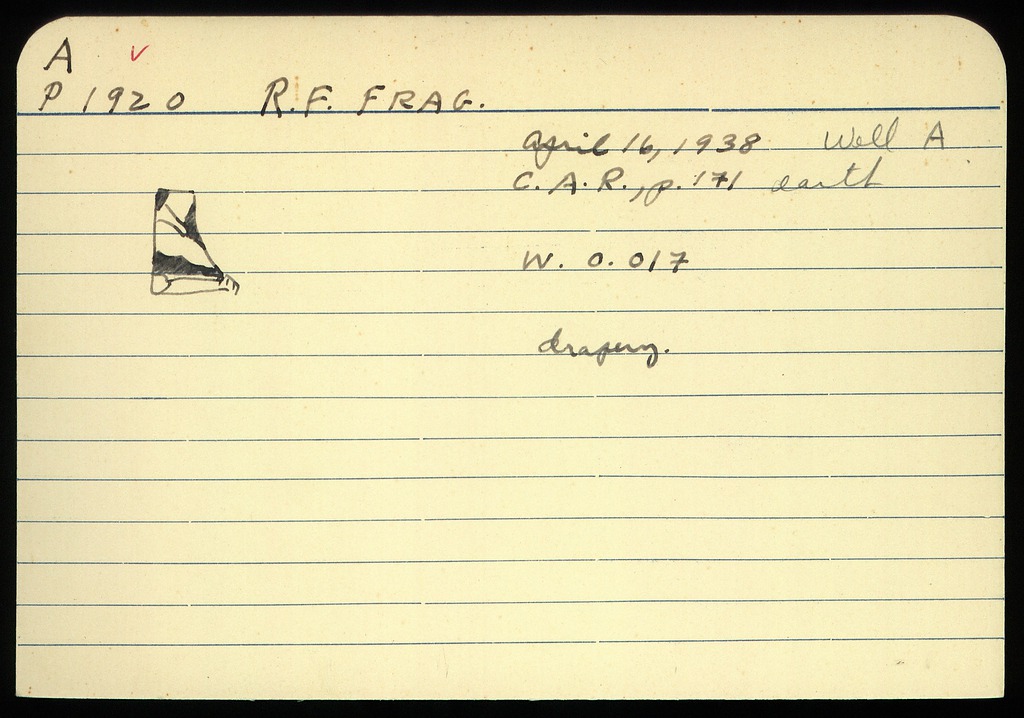 A ✓
P 1920 R.F. FRAG.
April 16, 1938 Well A
C.A.R., p. 171 earth
W. 0.017
drapery.